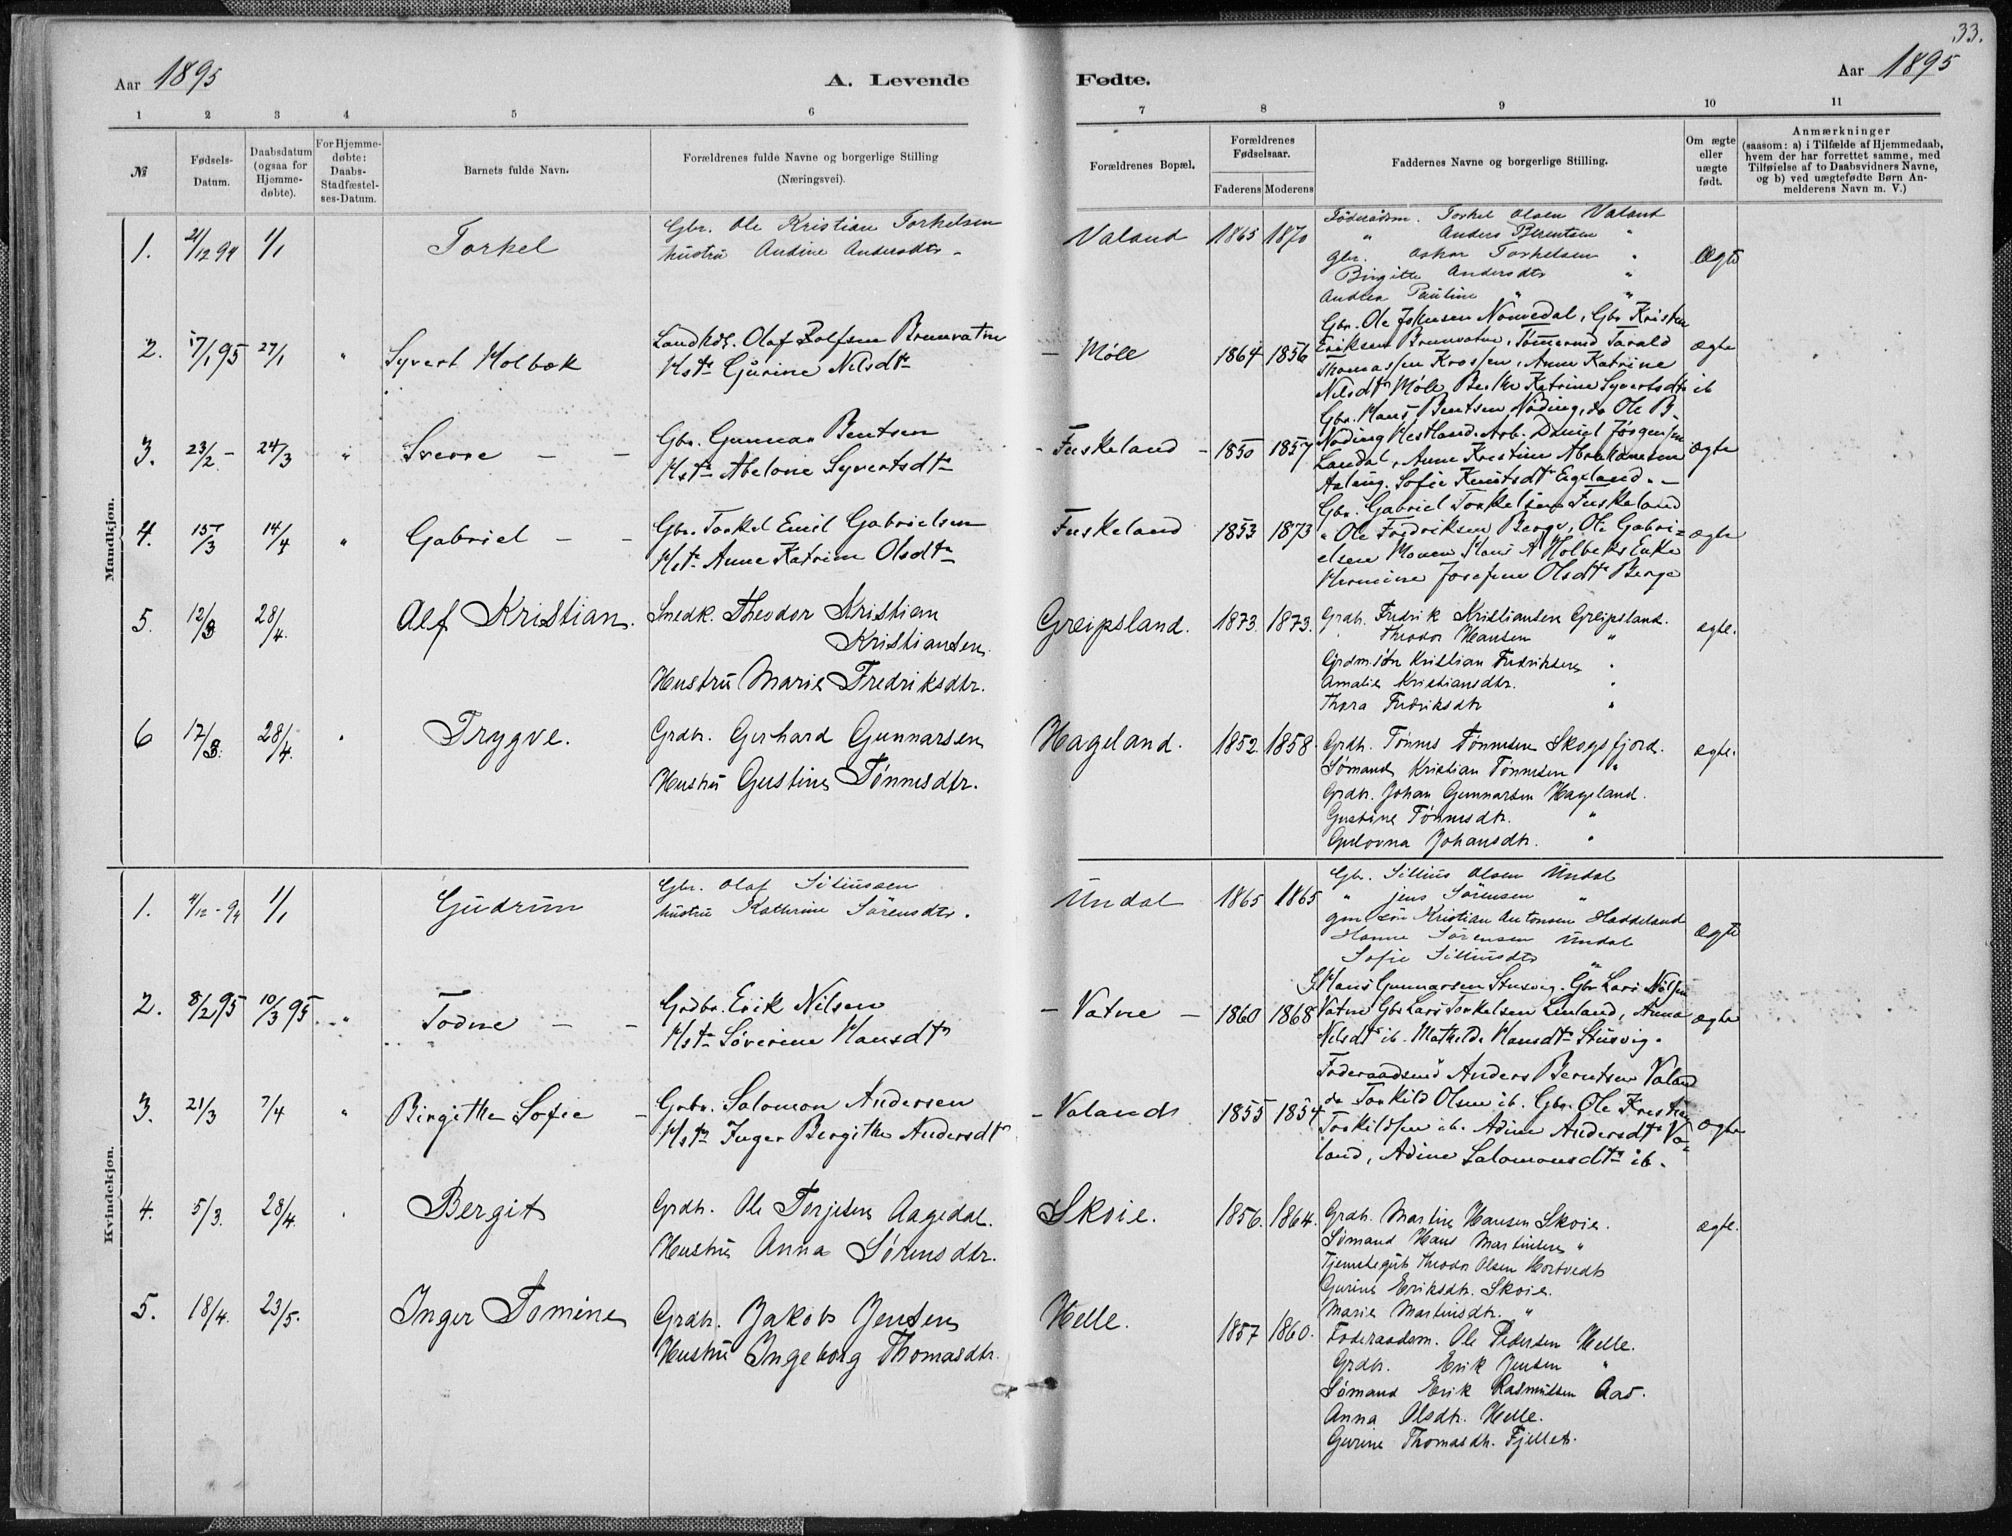 33.
Aar 1895
A. Levende
Fødte.
Aar 1895
1 2 3 4 5 6 7 8 9 10 11
№
Fødsels-
Datum.
Daabsdatum
(ogsaa for
Hjemme-
døbte).
For Hjemme-
døbte:
Daabs-
Stadfæstel-
ses-Datum.
Barnets fulde Navn.
Forældrenes fulde Navne og borgerlige Stilling
(Næringsvei).
Forældrenes Bopæl.
Forældrenes
Fødselsaar.
Faderens Moderens
Faddernes Navne og borgerlige Stilling.
Om ægte
eller
uægte
født.
Anmærkninger
(saasom: a) i Tilfælde af Hjemmedaab,
hvem der har forrettet samme, med
Tilføielse af to Daabsvidners Navne,
og b) ved uægtefødte Børn An-
melderens Navn m. V.)
Mandkjøn.
1. 21/12 94 1/1 Torkel
Gbr. Ole Kristian Torkelsen
hustru Andine Andersdtr.
Valand 1865 1870
Føderadsm. Torkel Olsen Valand
" Anders Berentsen "
gbr. Oskar Torkelsen "
Birgitte Andersdtr "
Andrea Pauline " "
Ægte
2. 17/1 95 27/1 " Syvert Holbæk
Landhdl. Olaf Rolfsen Brunvatne
Hstr Gurine Nilsdtr
- Møll 1864 1856
Gbr. Ole Nomedal, Gbr Kristen
Eriksen Brunvatne, Tømmermd Tarald
Thomassen Krossen, Anne Katrine
Nilsdtr Møll, Berthe Katrine Syvertsdtr ib
ægte
3. 23/2 - 24/3 " Sverre - -
Gbr. Gunnar Bentsen
Hstr Abelone Syvertsdtr
- Fuskeland - 1850 1857
Gbr. Hans Bentsen Nøding, do Ole B.
Nøding Hestland. Arb. Daniel Jørgensen
Landal, Anne Kristine
Sofie Knutsdtr Egeland
ægte
4. 15/3 14/4 " Gabriel - -
Gbr. Torkel Emil Gabrielsen
Hstr Anne Katrine Olsdtr
Fuskeland 1853 1873
Gbr. Gabriel Torkelsen Fuskeland
" Ole Fredriksen Berge, Ole Gabri=
elsen Hans A Holbeks Enke
Hermine Josefine Olsdtr Berge
ægte
5. 12/3 28/4. Alf Kristian.
Snedk. Theodor Kristian
Kristiansen
Hustru Marie Fredriksdtr.
Greipsland. 1873. 1873.
Grdbr. Fredrik Kristiansen Greipsland.
Theodor Hansen "
Grdm.søn Kristian Fredriksen "
Amalie Kristiansdtr. "
Thora Fredriksdtr "
ægte.
6 17/3. 28/4. " Trygve.
Grdbr. Gerhard Gunnarsen
Hustru Gustine Tønnesdtr.
Hageland. 1852. 1858.
Grdbr. Tønnes Tønnesen Skogsfjord.
Sømand Kristian Tønnesen "
Grdbr. Johan Gunnarsen Hageland.
Gustine Tønnesdtr. "
Johansdtr. "
ægte.
Kvindekjøn.
1. 4/12 - 94 1/1 Gudrun
Gbr. Olaf Siliussen
hustru Kathrine Sørensdtr.
Undal 1865 1865
Gbr. Sillius Olsen Undal
" Jens Sørensen "
gm søn Kristian Antonsen Haddeland
Hanne Sørensen Undal
Sofie Silliusdtr "
Ægte
2. 8/2 95 10/3 95 " Todne - -
Grdbr. Erik Nilsen
Hstr Søverine Hansdtr
- Vatne - 1860 1868
Hans Gunnarsen Stusvig. Gbr Lars Nilsen
Vatne Gbr Lars Torkelsen Lauland, Anna
Nilsdtr ib. Mathilde Hansdtr Stusvig.
ægte
3. 21/3 7/4 " Birgithe Sofie -
Grbr. Salomon Andersen
Hstr Inger Bergithe Andersdtr
- Valand 1855 1854
Føderaadsmd Anders Berntsen Valand
do Torkild Olsen ib. Gbr. Ole Kristian
Torkildsen ib. Adine Andersdtr Va=
land, Adine Salomonsdtr ib.
ægte
4. 5/3. 28/4. " Bergit
Grdbr. Ole Terjesen Aagedal.
Hustru Anna Sørensdtr.
Skoie. 1856. 1864.
Grdbr. Martin Hansen Skoie.
Sømand Hans Martinsen "
Tjenestegut Theodor Olsen Hortvedt
Gurine Eriksdtr. Skoie.
Marie Martinsdtr. "
ægte.
5. 18/4. 23/5. Inger Tomine
Grdbr. Jakob Jensen
Hustru Ingeborg Thomasdtr.
Helle. 1857 1860.
Føderaadsm. Ole Pedersen Helle.
Grdbr. Erik Jensen "
Sømand Erik Rasmussen Aas.
Anna Olsdtr. Helle.
Gurine Thomasdtr. Fjellet.